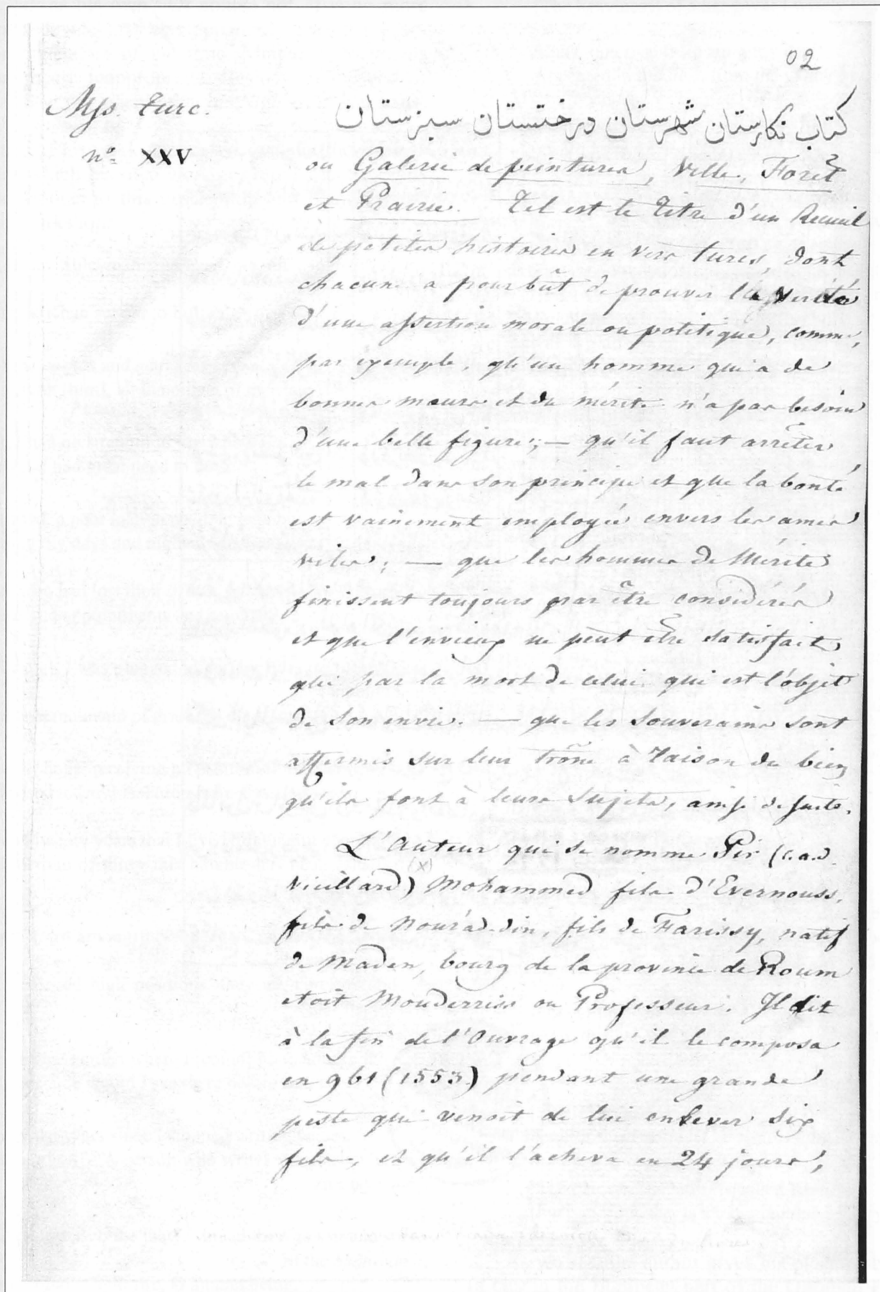 02
Mss. Turc.
n.º XXV
كتاب نكارستان شهرستان درختستان سبزستان
ou Galerie de peintures, Ville, Forêt
et Prairie. Tel est le titre d'un Recueil
de petites histoires en vers turcs, dont
chacune a pour bût de prouver la verité
d'une assertion morale ou politique, comme,
par exemple, qu'un homme qui a de
bonnes mœurs et du mérite n'a pas besoin
d'une belle figure; — qu'il faut arrêter
le mal dans son principe et que la bonté
est vainement employée envers les ames
viles; — que les hommes de Mérite
finissent toujours par être considérés
et que l'envieux ne peut être satisfait
que par la mort de celui qui est l'objet
de son envie. — que les souverains sont
affermis sur leur trône à raison du bien
qu'ils font à leurs sujets, ainsi de suite.
L'Auteur qui se nomme Pir (c.a.d.
(x)
Vieillard) Mohammed fils d'Evernouss,
fils de Nouràddin, fils de Farissy, natif
de Maden, bourg de la province de Roum
etoit Mouderriss ou Professeur. Il dit
à la fin de l'Ouvrage qu'il le composa
en 961 (1553) pendant une grande
peste qui venoit de lui enlever six
fils, et qu'il l'acheva en 24 jours,